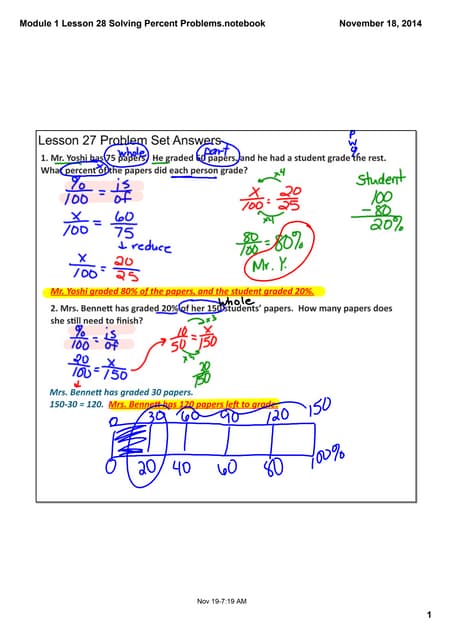 Module 1 Lesson 28 Solving Percent Problems.notebook
November 18, 2014
Lesson 27 Problem Set Answers
whole
part
1. Mr. Yoshi has 75 papers. He graded 60 papers, and he had a student grade the rest.
What percent of the papers did each person grade?
%/100 = is/of
x/100 = 60/75
↓ reduce
x/100 = 20/25
x4
x/100 = 20/25
x4
80/100 = 80%
Mr. Y.
Student
100
- 80
20%
Mr. Yoshi graded 80% of the papers, and the student graded 20%.
whole
2. Mrs. Bennett has graded 20% of her 150 students' papers. How many papers does
she still need to finish?
%/100 = is/of
20/100 = x/150
x3
10/50 = x/150
Mrs. Bennett has graded 30 papers.
150-30 = 120. Mrs. Bennett has 120 papers left to grade.
0 30 60 90 120 150
0 20 40 60 80 100%
Nov 19-7:19 AM
1